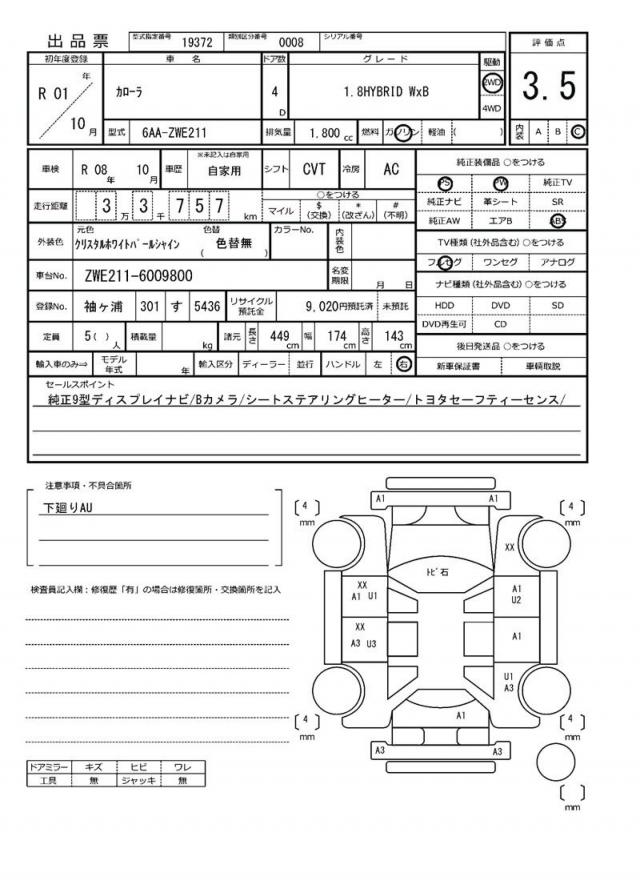 出品票
型式指定番号 19372 類別区分番号 0008 シリアル番号
初年度登録 車名 ドア数 グレード 駆動 評価点
R 01 年 10 月
カローラ 4 D 1.8HYBRID WxB 2WD 4WD
3.5
型式 6AA-ZWE211 排気量 1.800 cc 燃料 ガソリン 軽油 ( )
内装 A B C
車検 R 08 年 10 月 車歴 ※未記入は自家用 自家用 シフト CVT 冷房 AC
純正装備品 ○をつける
PS PW 純正TV
純正ナビ 革シート SR
純正AW エアB ABS
走行距離 3 万 3 千 7 5 7 km
○をつける
マイル $ (交換) * (改ざん) # (不明)
TV種類(社外品含む) ○をつける
フルセグ ワンセグ アナログ
外装色 元色 クリスタルホワイトパールシャイン 色替 ( 色替無 ) カラーNo. 内装色
ナビ種類(社外品含む) ○をつける
HDD DVD SD
DVD再生可 CD
車台No. ZWE211-6009800 名変期限 月 日
登録No. 袖ヶ浦 301 す 5436 リサイクル預託金 9,020円預託済 未預託
定員 5( ) 人 積載量 kg 諸元 長さ 449 cm 幅 174 cm 高さ 143 cm
後日発送品 ○をつける
新車保証書 車輌取説
輸入車のみ⇒ モデル年式 年 輸入区分 ディーラー 並行 ハンドル 左 右
セールスポイント
純正9型ディスプレイナビ/Bカメラ/シートステアリングヒーター/トヨタセーフティーセンス/
注意事項・不具合箇所
下廻りAU
検査員記入欄:修復歴「有」の場合は修復箇所・交換箇所を記入
A1 A1
[ 4 ] mm
[ 4 ] mm
XX
トビ石
XX
A1 U1
A1
U2
XX
A3 U3
A1
U1
A3
A1
[ 4 ] mm
[ 4 ] mm
A3 A3
[ ] mm
ドアミラー キズ ヒビ ワレ
工具 無 ジャッキ 無